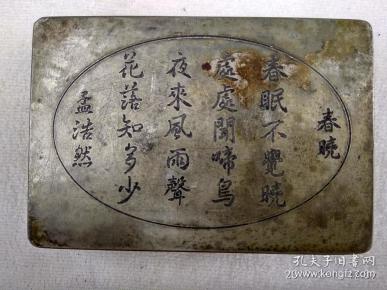 春曉
春眠不覺曉
處處聞啼鳥
夜來風雨聲
花落知多少
孟浩然
孔夫子旧书网